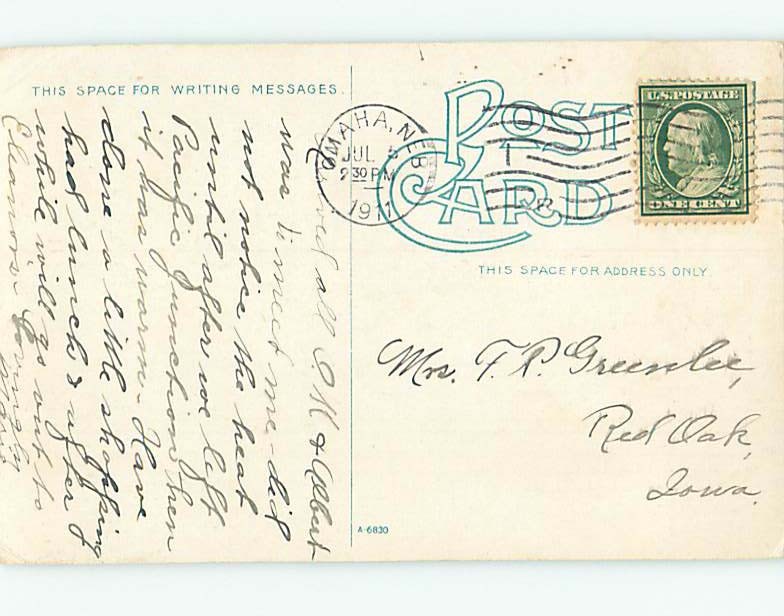 THIS SPACE FOR WRITING MESSAGES.
POST CARD
THIS SPACE FOR ADDRESS ONLY.
OMAHA, NEB
JUL 5
2 30 PM
1911
U.S. POSTAGE
ONE CENT
Arrived all O.K & Albert
was to meet me - did
not notice the heat
until after we left
Pacific Junction then
it was warm. Have
done a little shopping
had lunch & after a
while will go out to
Eleanors. Lovingly
Mrs. F. R. Greenlee,
Red Oak,
Iowa.
A-6830